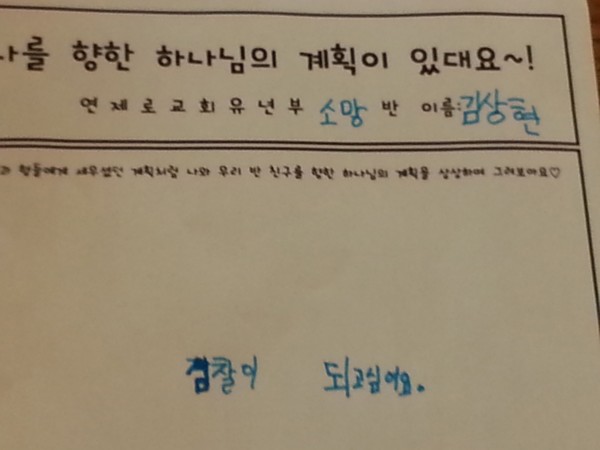 나를 향한 하나님의 계획이 있대요~!
연제로교회유년부 소망 반 이름:김상현
과 형들에게 세우셨던 계획처럼 나와 우리 반 친구를 향한 하나님의 계획을 상상하며 그려보아요♡
검찰이 되고심어요.